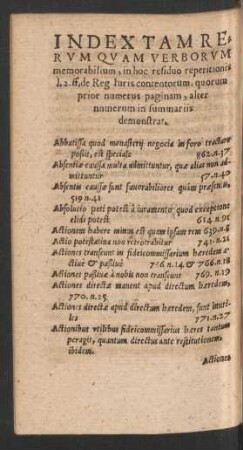 INDEX TAM RE-
RVM QVAM VERBORVM
memorabilium, in hoc residuo repetitionis
l. 2. ff. de Reg. Iuris contentorum, quorum
prior numerus paginam, alter
numerum in summariis
demonstrat.
Abbatissa quod monasterij negocia in foro tractare
possit, est speciale 862.n.37
Absentiæ causa multa admittuntur, quæ aliàs non ad
mittuntur 57.n.40
Absentis causæ sunt fauorabiliores quàm præsen.
519 n.41
Absolutio peti potest à iuramento quod exceptione
elidi potest 614 n.91
Actionem habere minus est quam ipsam rem 639.n.8
Actio potestatiua non retrotrahitur 741.n.21
Actiones transeunt in fideicommissarium hæredem a
ctiuè & passiuè 746.n.14 & 766.n.18
Actiones passiuæ à nobis non transeunt 769.n.19
Actiones directæ manent apud directum hæredem,
770.n.25
Actiones directæ apud directum hæredem, sunt inuti-
les 771.n.27
Actionibus vtilibus fideicommissarius hæres tantum
peragit, quantum directus ante restitutionem,
ibidem.
Actiones